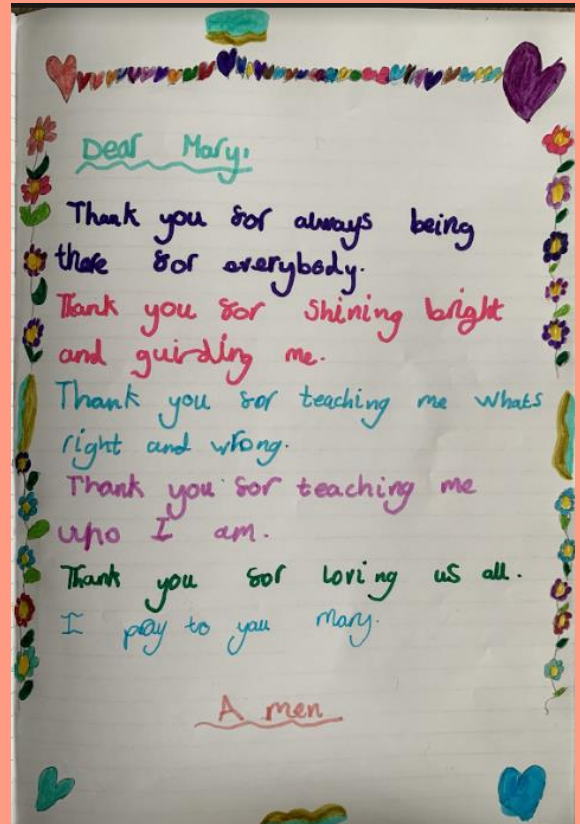 Dear Mary,
Thank you for always being
there for everybody.
Thank you for shining bright
and guirding me.
Thank you for teaching me whats
right and wrong.
Thank you for teaching me
who I am.
Thank you for loving us all.
I pray to you Mary.
A men